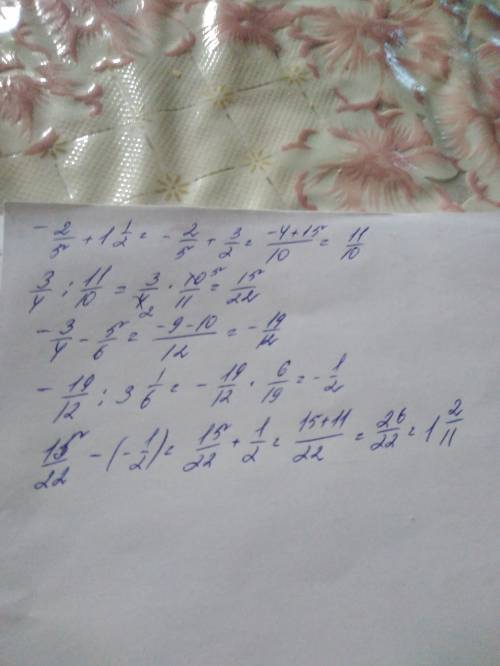 -2/5 + 1 1/2 = -2/5 + 3/2 = (-4+15)/10 = 11/10
3/4 : 11/10 = 3/4 2 · 10/11 5 = 15/22
-3/4 - 5/6 = (-9-10)/12 = -19/12
-19/12 : 3 1/6 = -19/12 · 6/19 = -1/2
15/22 - (-1/2) = 15/22 + 1/2 = (15+11)/22 = 26/22 = 1 2/11